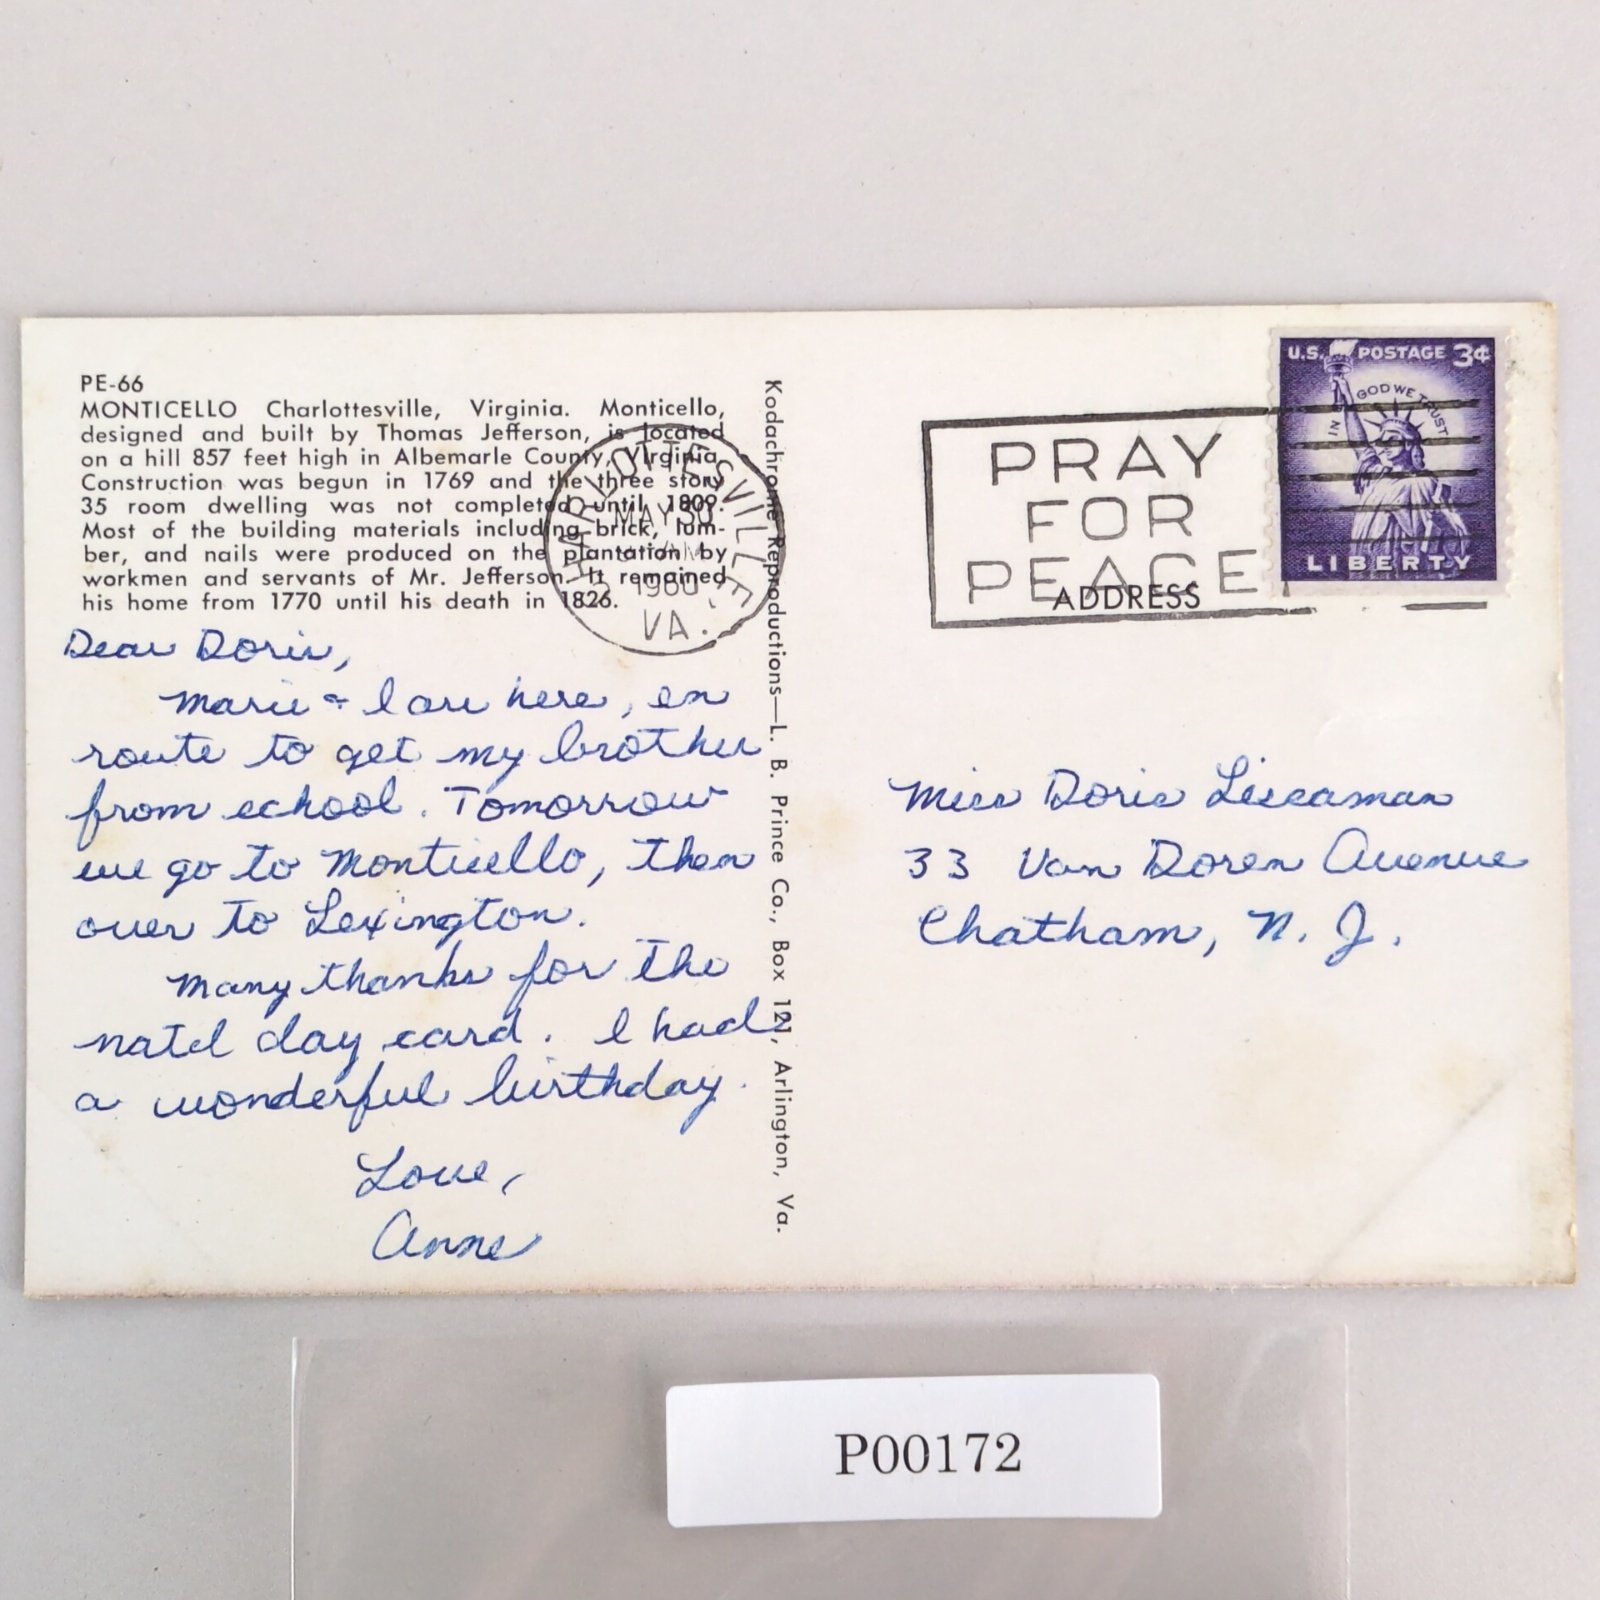 PE-66
MONTICELLO Charlottesville, Virginia. Monticello,
designed and built by Thomas Jefferson, is located
on a hill 857 feet high in Albemarle County, Virginia.
Construction was begun in 1769 and the three story
35 room dwelling was not completed until 1809.
Most of the building materials including brick, lum-
ber, and nails were produced on the plantation by
workmen and servants of Mr. Jefferson. It remained
his home from 1770 until his death in 1826.
CHARLOTTESVILLE
MAY 30
1960
VA.
Dear Doris,
Marie & I are here, en
route to get my brother
from school. Tomorrow
we go to Monticello, then
over to Lexington.
Many thanks for the
natel day card. I had
a wonderful birthday.
Love,
Anne
Kodachrome Reproductions—L. B. Prince Co., Box 121, Arlington, Va.
U.S. POSTAGE 3¢
IN GOD WE TRUST
LIBERTY
PRAY
FOR
PEACE
ADDRESS
Miss Doris
33 Van Doren Avenue
Chatham, N. J.
P00172